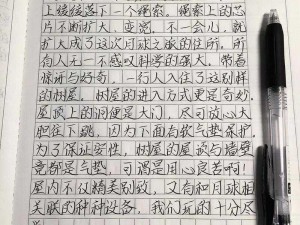 上缓缓落下一个绳索,绳索上的芯
片不断扩大、变宽,不一会儿,就
扩大成了这次月球之旅的住所,所
有人无一不感叹科学的强大,带着
惊讶与好奇,一行人入住了这别样
的树屋。树屋的进入方式更是奇妙。
屋顶上的洞便是大门,尽可放心大
胆往下跳,因为下面有软气垫保护。
为了保证安全性,树屋的屋顶与墙壁
竟都是气垫,可谓是用心良苦啊!
屋内不仅精美别致,又有和月球相
关联的种种设备,我们玩的十分尽